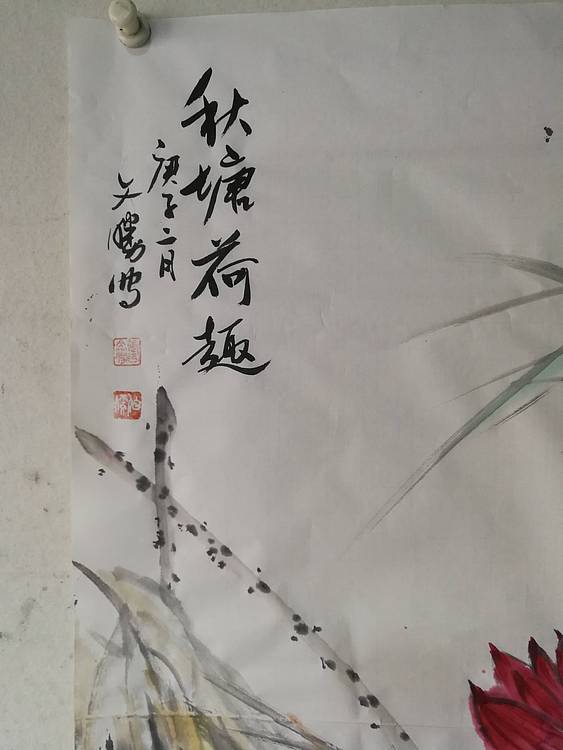 秋塘荷趣
庚子二月
文勝写